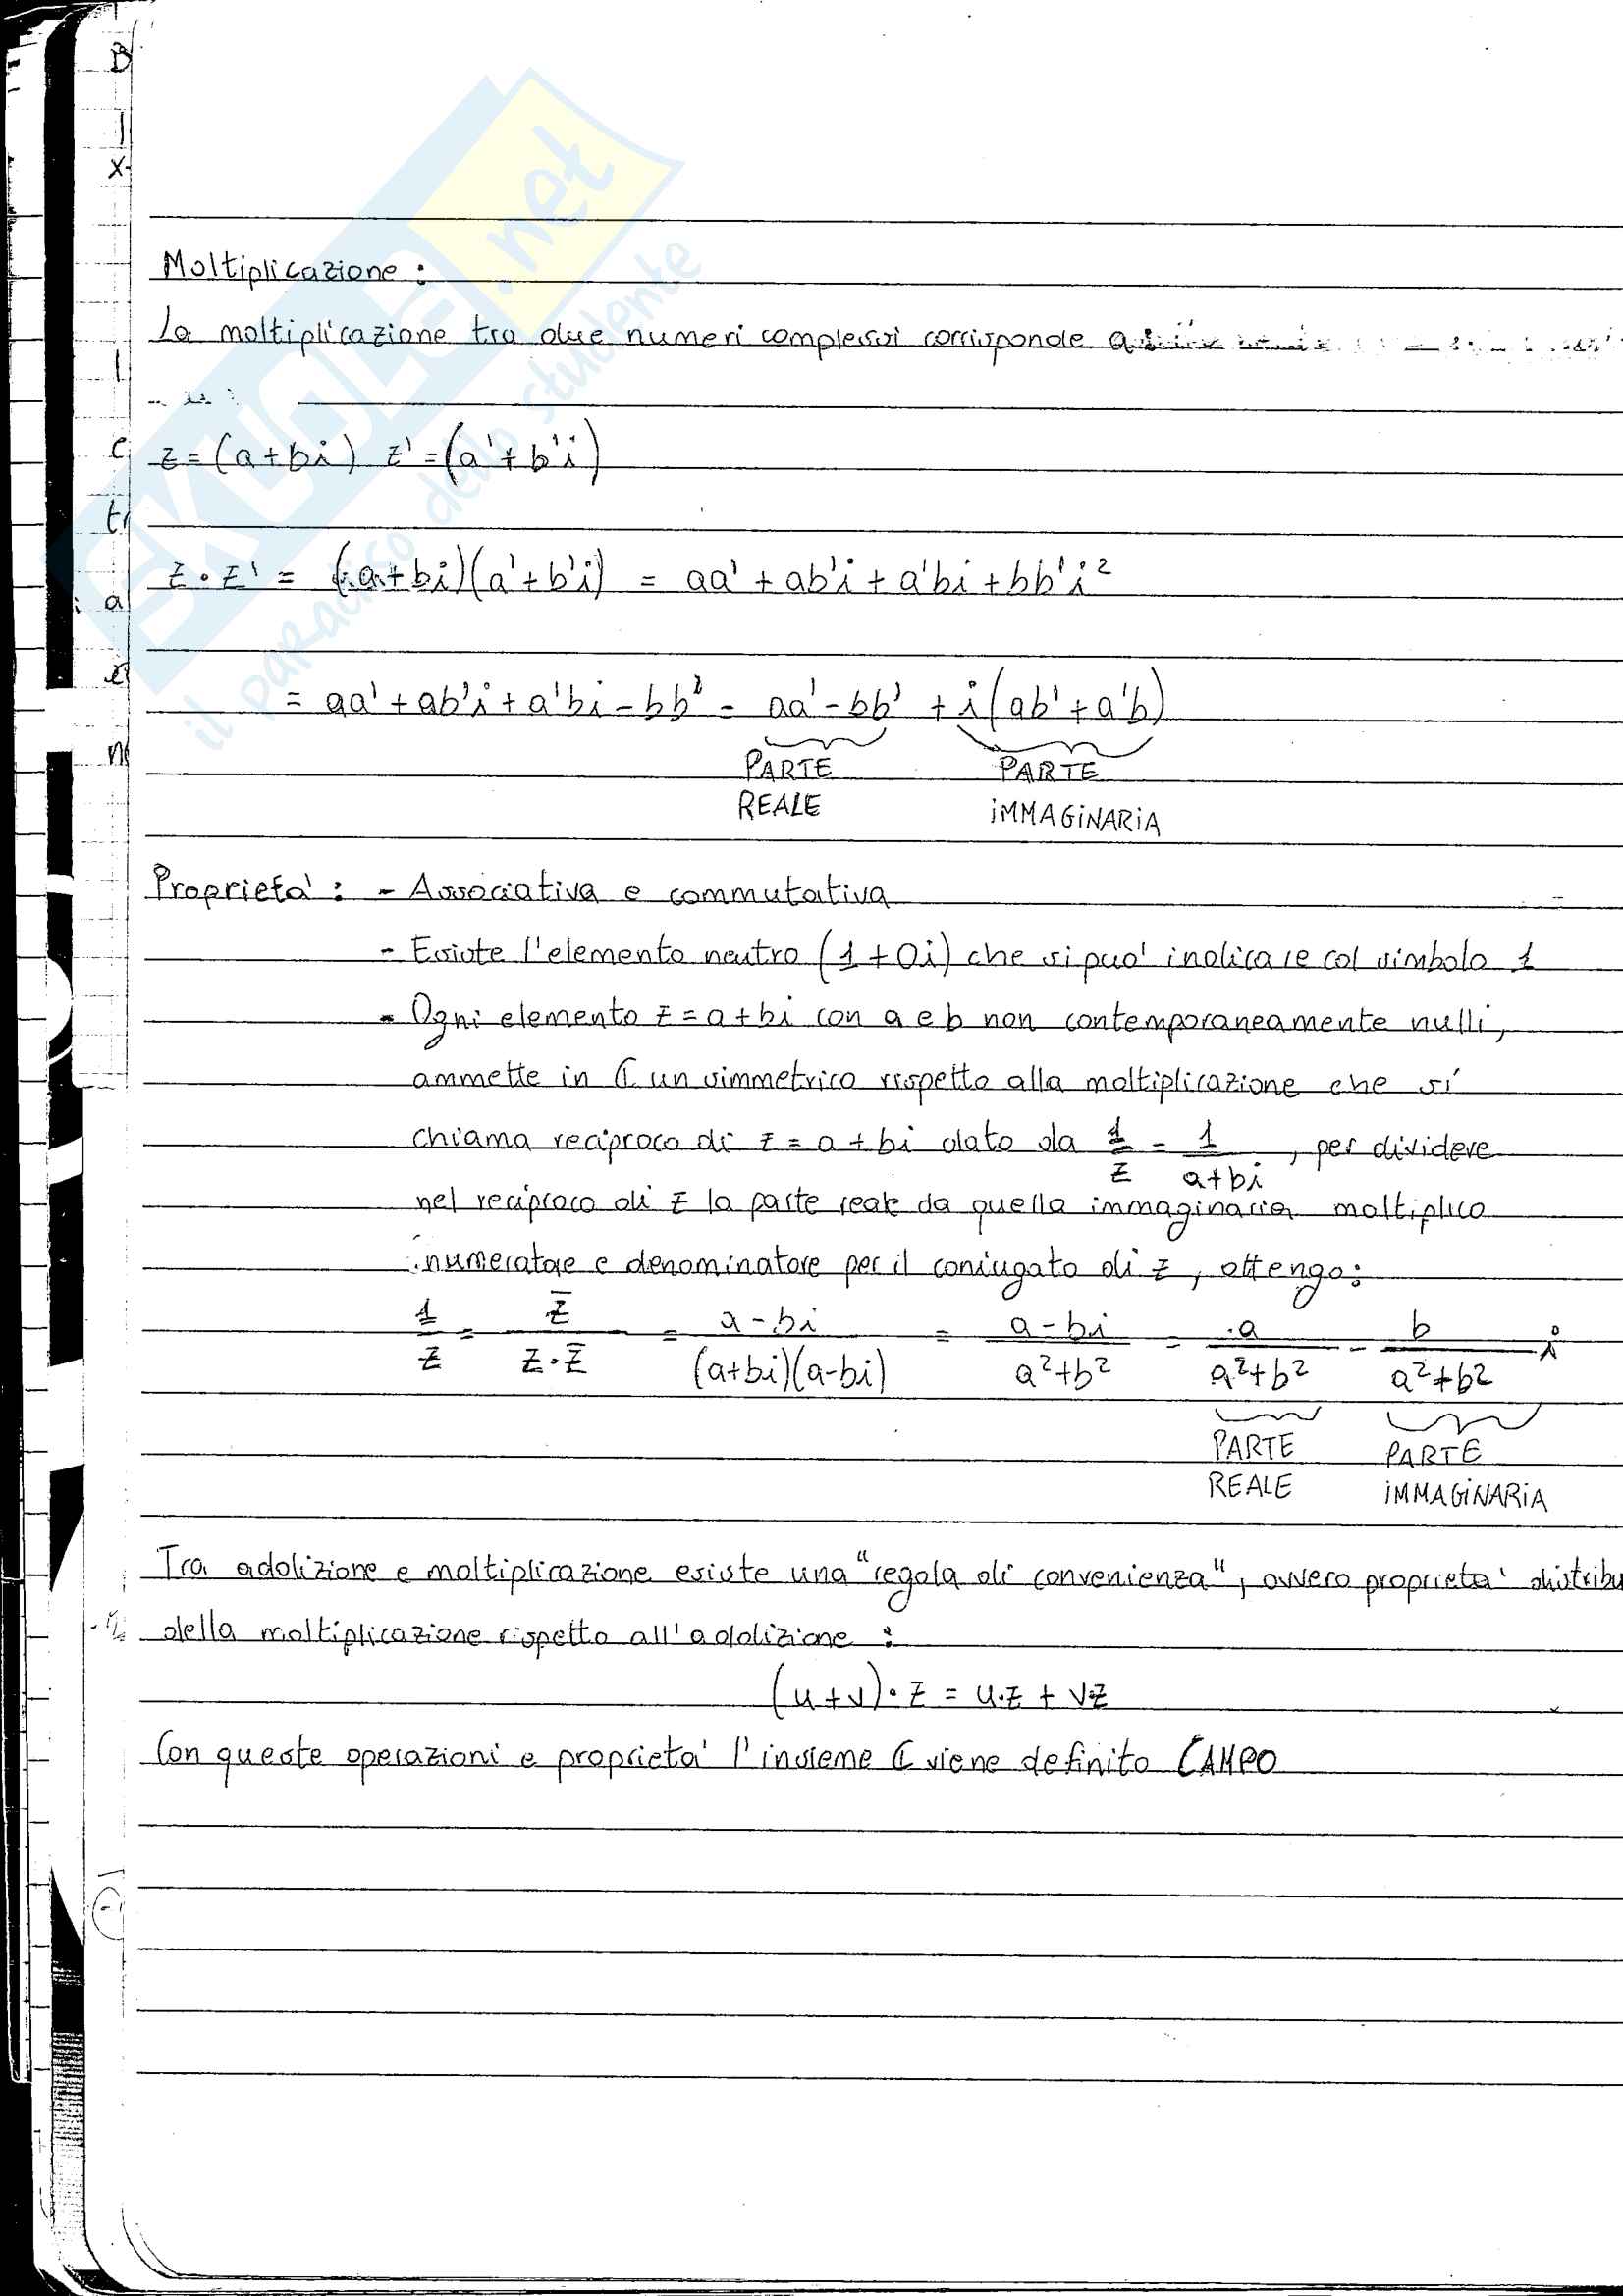 Moltiplicazione:
La moltiplicazione tra due numeri complessi corrisponde
z=(a+bi) z'=(a'+b'i)
z·z' = (a+bi)(a'+b'i) = aa'+ab'i+a'bi+bb'i²
= aa'+ab'i+a'bi-bb' = aa'-bb' + i(ab'+a'b)
PARTE REALE PARTE IMMAGINARIA
Proprieta': - Associativa e commutativa
- Esiste l'elemento neutro (1+0i) che si puo' indicare col simbolo 1
- Ogni elemento z=a+bi con a e b non contemporaneamente nulli,
ammette in ℂ un simmetrico rispetto alla moltiplicazione che si
chiama reciproco di z=a+bi dato da 1/z = 1/(a+bi), per dividere
nel reciproco di z la parte reale da quella immaginaria moltiplico
numeratore e denominatore per il coniugato di z, ottengo:
1/z = z̄/(z·z̄) = (a-bi)/((a+bi)(a-bi)) = (a-bi)/(a²+b²) = a/(a²+b²) - b/(a²+b²) i
PARTE REALE PARTE IMMAGINARIA
Tra addizione e moltiplicazione esiste una "regola di convenienza", ovvero proprieta' distribu
della moltiplicazione rispetto all'addizione:
(u+v)·z = u·z + v·z
Con queste operazioni e proprieta' l'insieme ℂ viene definito CAMPO
SKUOLA.net
il paradiso dello studente